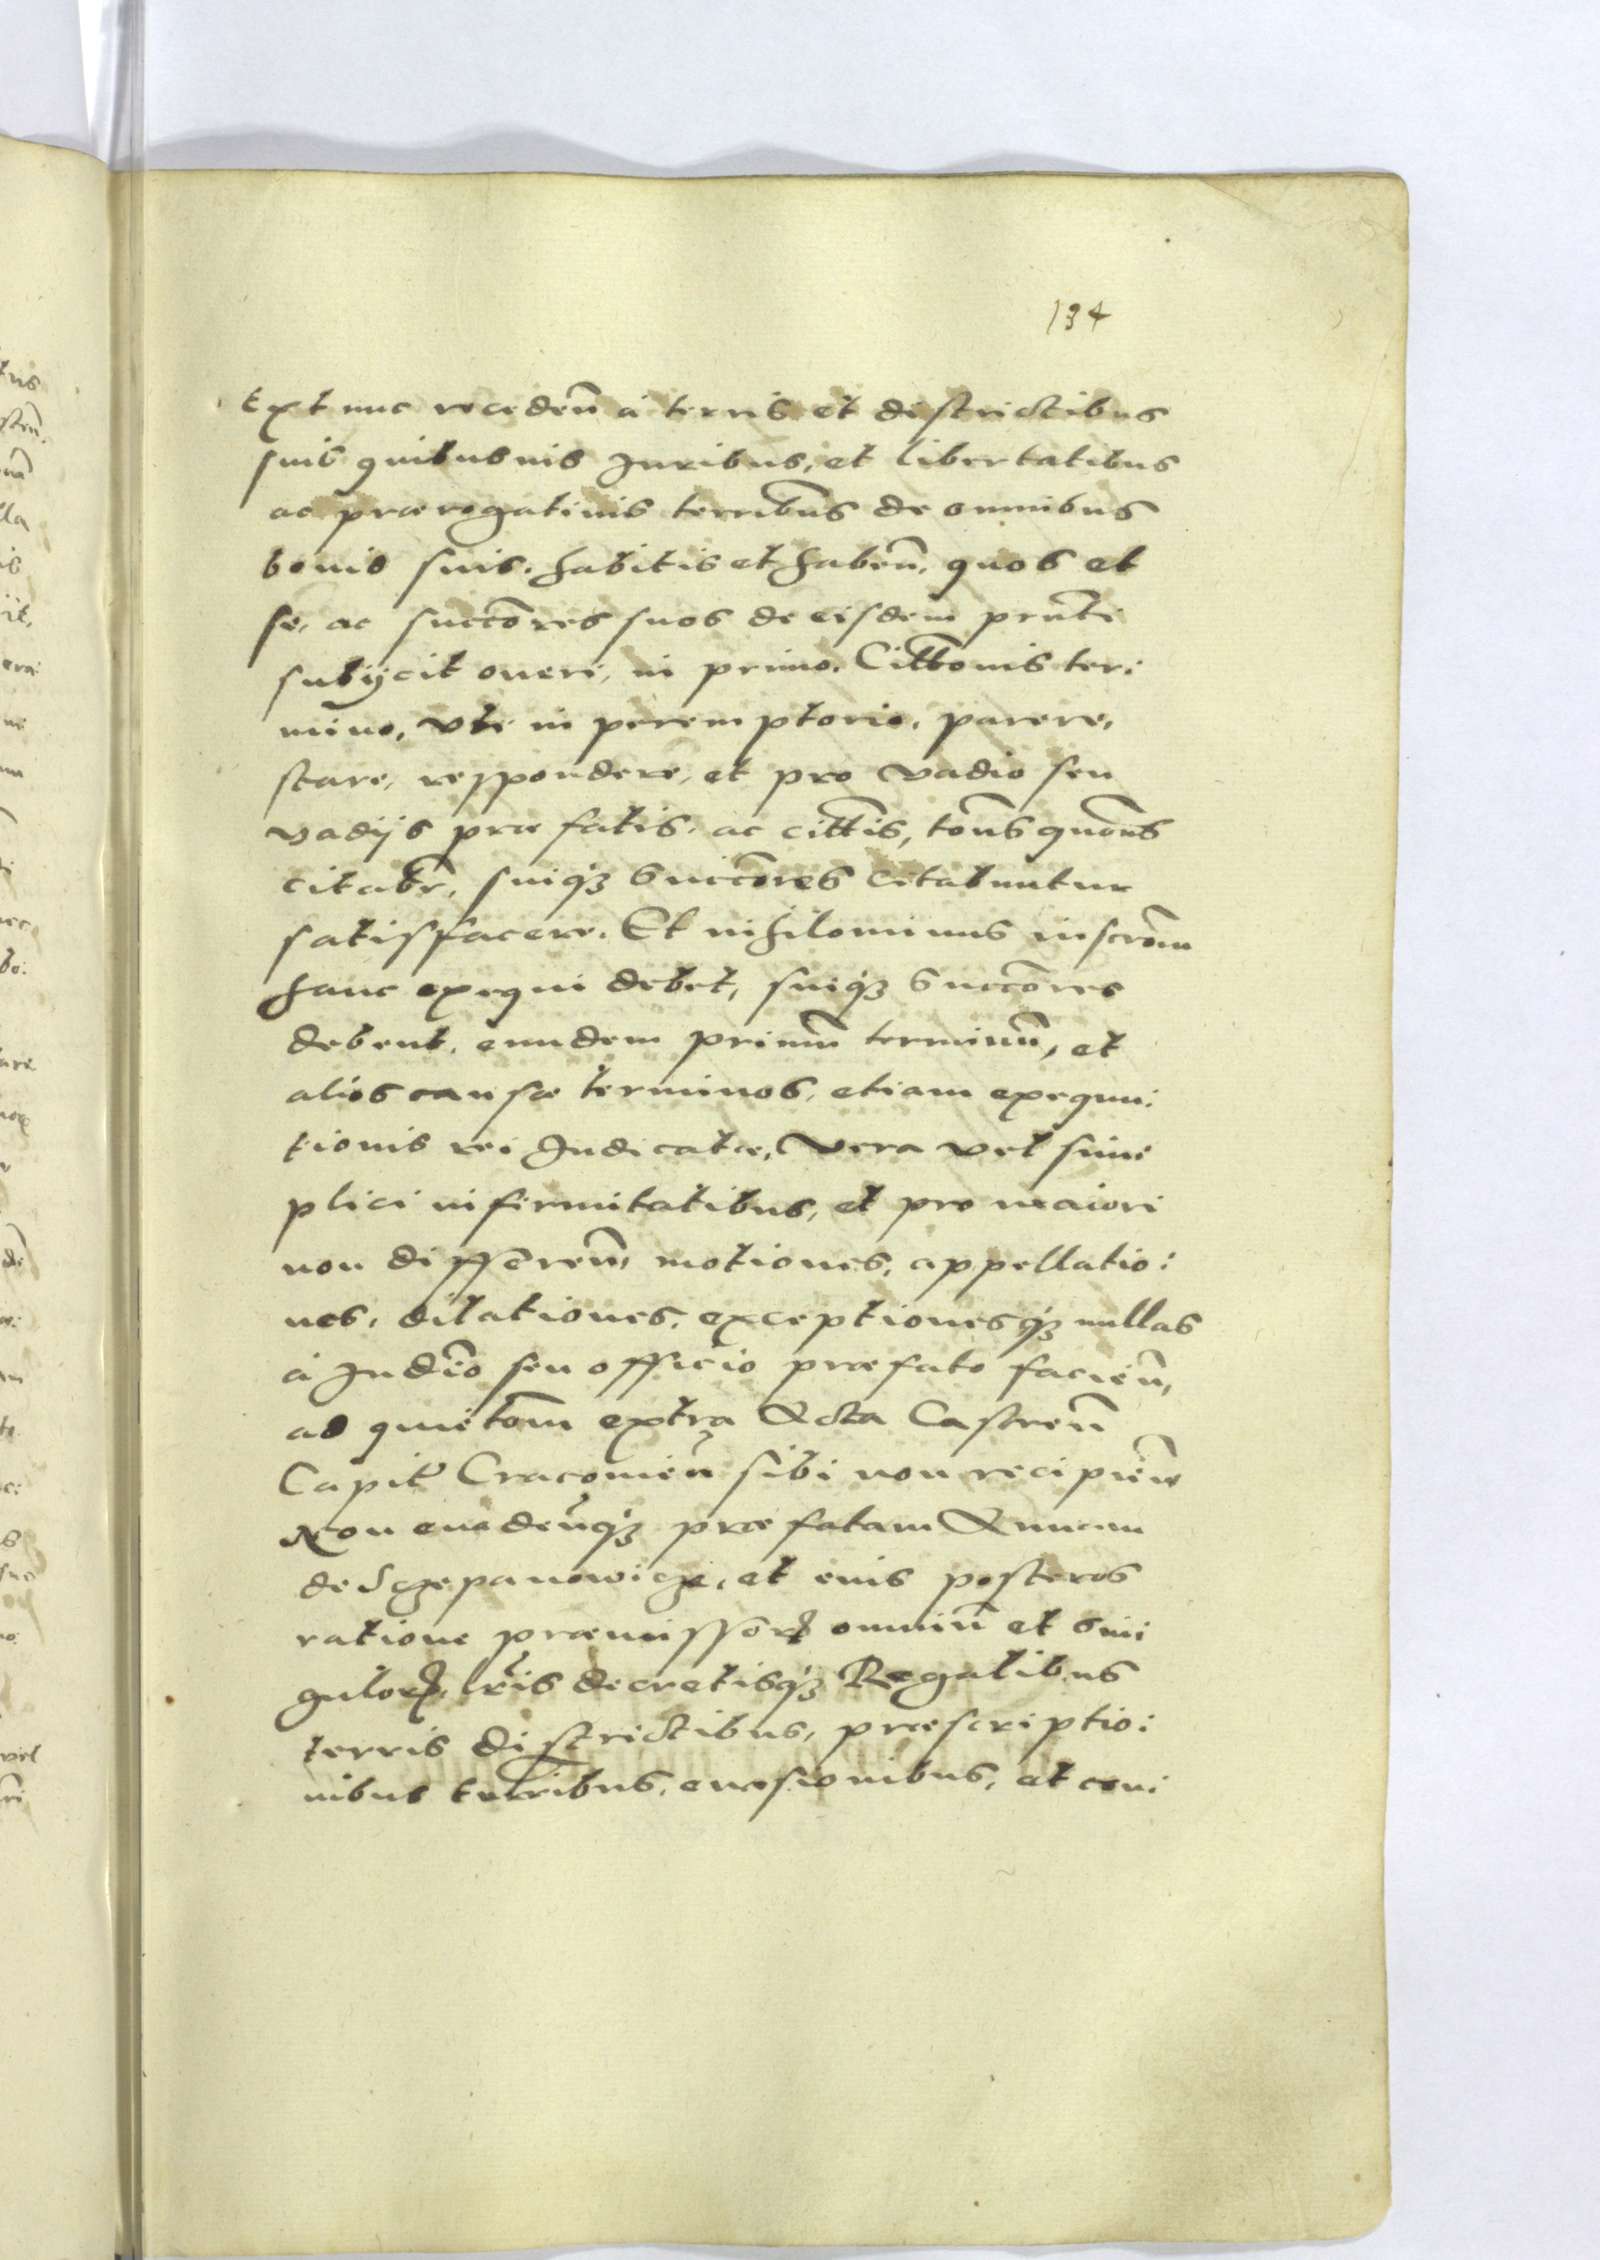 134
Extunc receden̄ a terris et districtibus
suis quibusuis Iuribus, et libertatibus
ac prærogatiuis terrībus de omnibus
bonis suis, habitis et haben̄, quos et
se, ac succōres suos de eisdem prn̄ti
subijcit oneri, in primo Cittōnis ter:
mino, vti in peremptorio, parere,
stare, respondere, et pro vadio seu
vadijs præfatis, ac cittīs, tōns quōns
citabr̄, suiqȝ Succōres citabuntur
satisfacere. Et nihilominus inscrōm
hanc exequi debet, suiqȝ Succōres
debent, eundem primū terminū, et
alios causæ terminos, etiam exequu:
tionis rei Iudicatæ, vera vel sim:
plici infirmitatibus, et pro maiori
non differen̄, motiones, appellatio:
nes, dilationes, exceptionesqȝ nullas
a Iudīo seu officio præfato facien̄,
ac quietōm extra Acta Castren̄
Capit Cracouien̄ sibi non recipien̄
Non euaden̄qȝ præfatam Annam
de Sczepanowicze, et eius posteros
ratione præmissorꝝ omniū et sin:
gulorꝝ, lr̄is decretisqȝ Regalibus
terris districtibus, præscriptio:
nibus terrībus, euasionibus, et con: